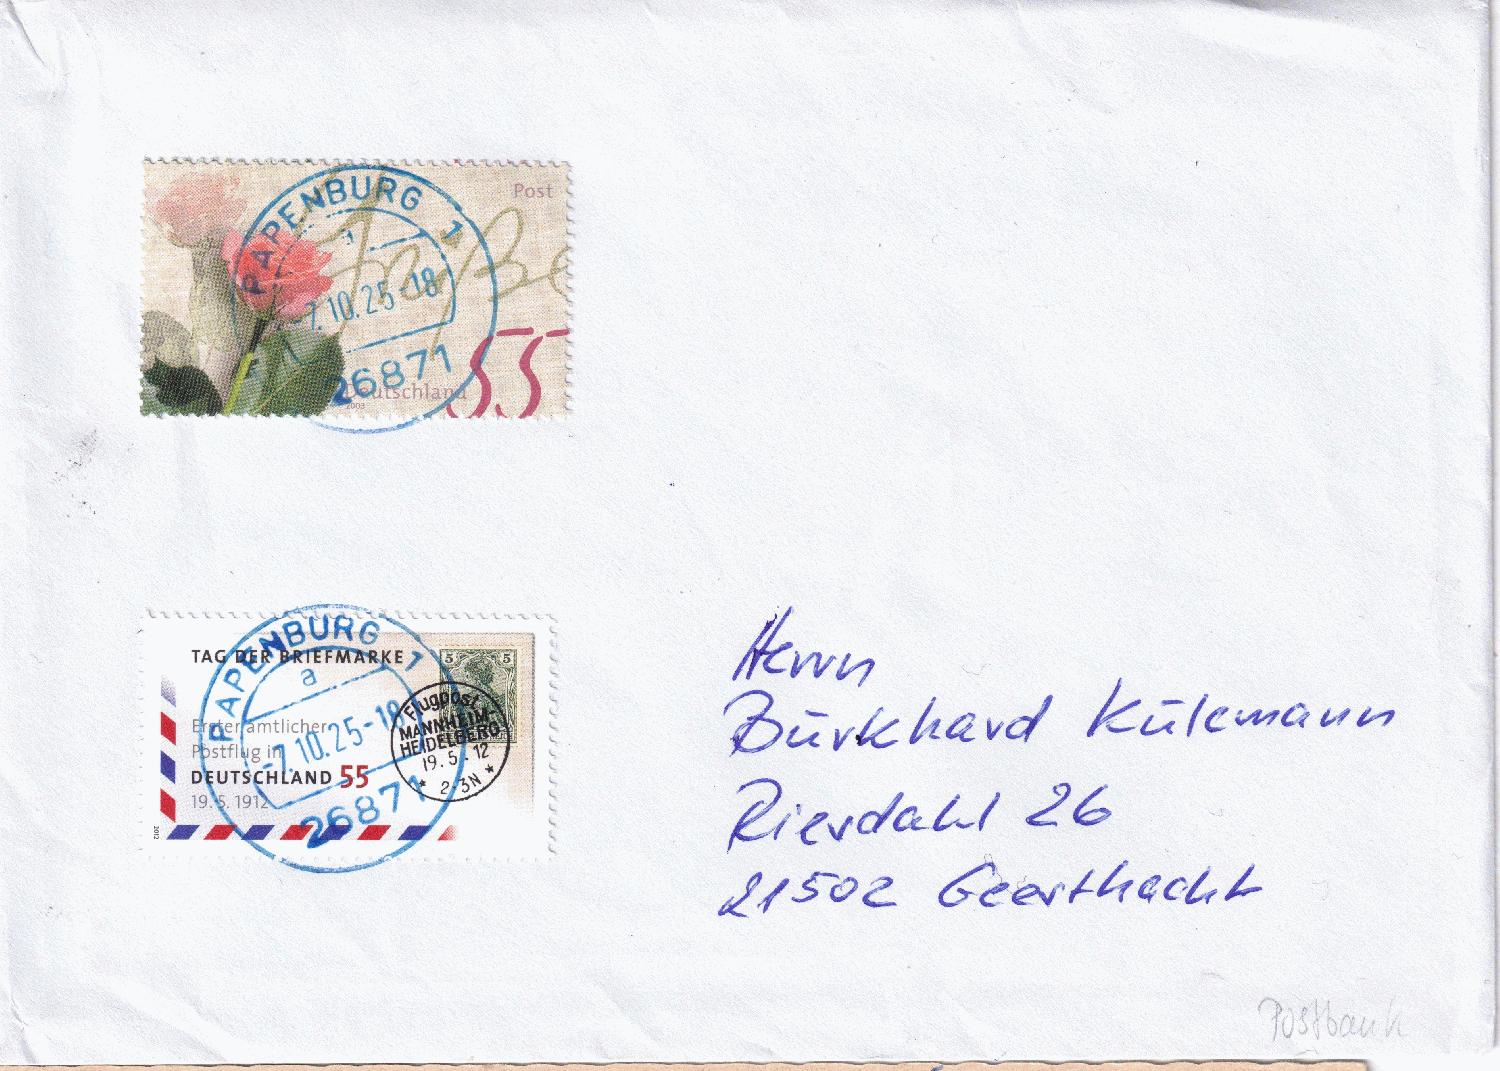 PAPENBURG 1
a
-7.10.25-18
26871
Post
Grüße
55
Deutschland
2003
PAPENBURG 1
a
-7.10.25-18
26871
TAG DER BRIEFMARKE
Erster amtlicher
Postflug in
DEUTSCHLAND 55
19.5.1912
2012
5 5
Flugpost
MANNHEIM
HEIDELBERG
19.5.12
* 2-3N *
Herrn
Burkhard Külemann
Riesdahl 26
21502 Geesthacht
Postbank